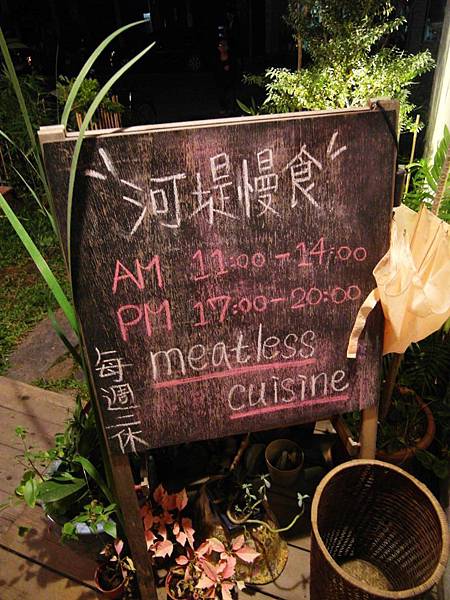 河堤慢食
AM 11:00-14:00
PM 17:00-20:00
meatless
cuisine
每週三休